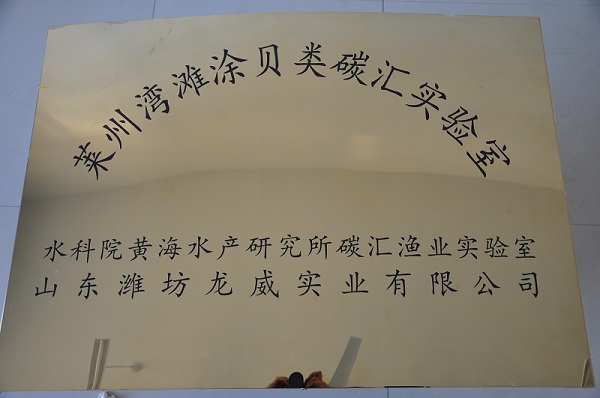 莱州湾滩涂贝类碳汇实验室
水科院黄海水产研究所碳汇渔业实验室
山东潍坊龙威实业有限公司